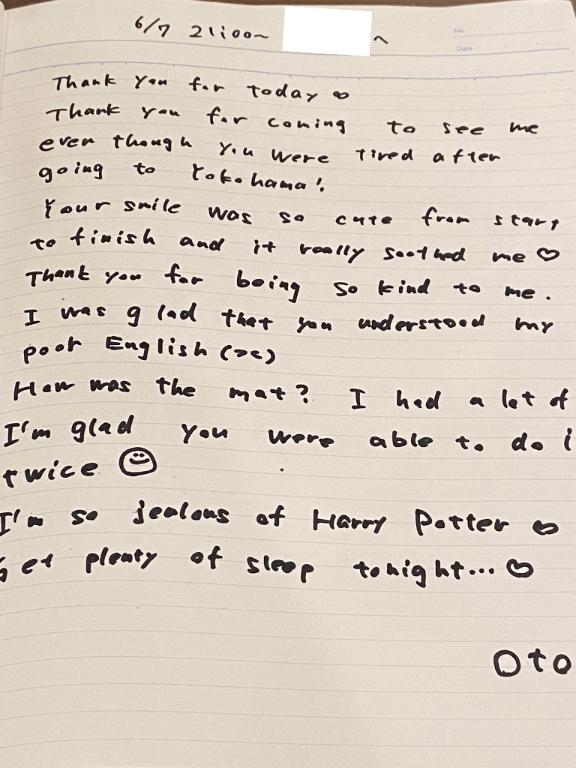 6/7 21:00~ へ
No.
Date
Thank you for today ♡
Thank you for coming to see me
even though you were tired after
going to Yokohama!
Your smile was so cute from start
to finish and it really soothed me ♡
Thank you for being so kind to me.
I was glad that you understood my
poor English (><)
How was the mat? I had a lot of
I'm glad you were able to do i
twice ☺
I'm so jealous of Harry Potter ♡
Get plenty of sleep tonight... ♡
Oto